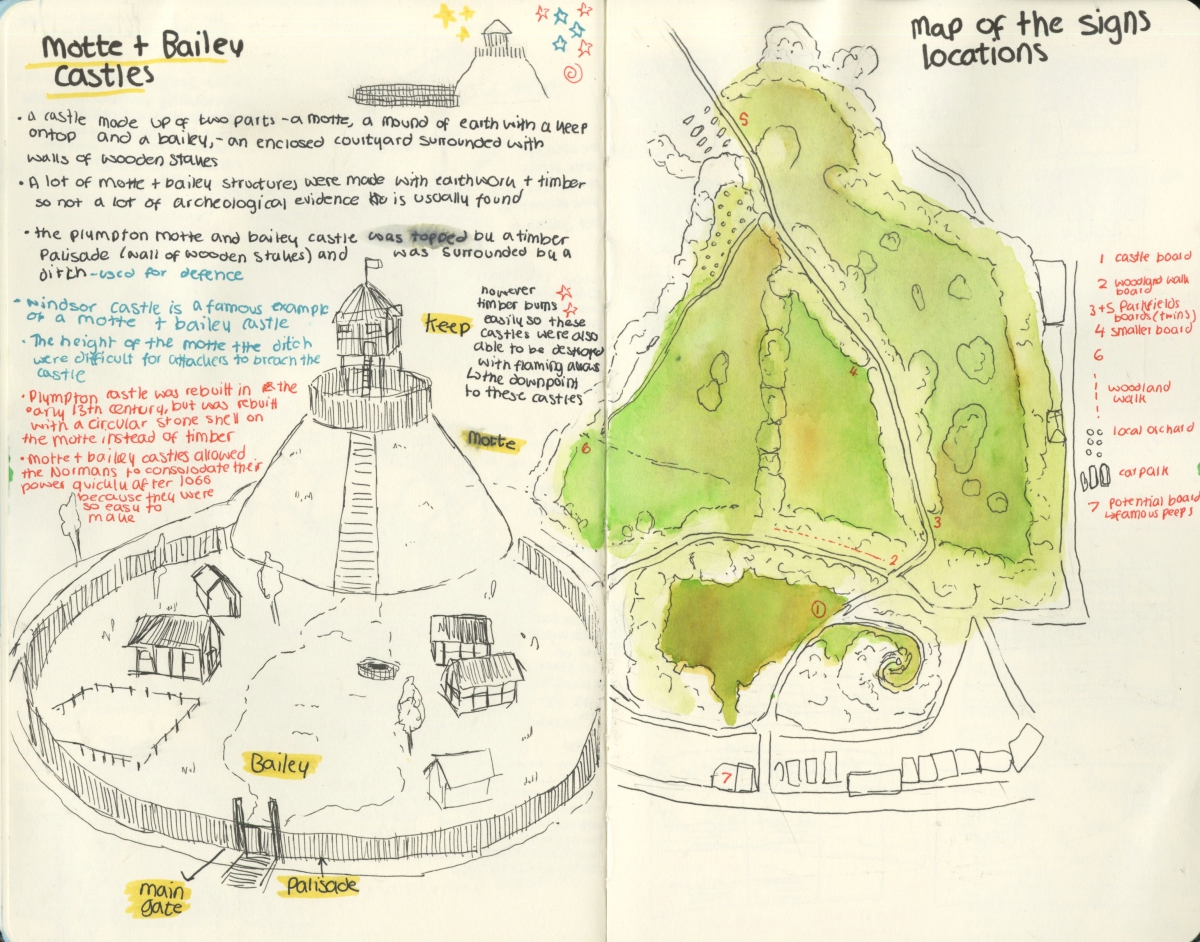 Motte + Bailey
Castles
• a castle made up of two parts - a motte, a mound of earth with a keep
ontop and a bailey, - an enclosed courtyard surrounded with
walls of wooden stakes
• A lot of motte + bailey structures were made with earthwork + timber
so not a lot of archeological evidence is usually found
• the plympton motte and bailey castle was topped by a timber
Palisade (wall of wooden stakes) and was surrounded by a
ditch - used for defence
• Windsor castle is a famous example
of a motte + bailey castle
• The height of the motte + the ditch
were difficult for attackers to breach the
castle
• Plympton castle was rebuilt in the
early 13th century, but was rebuilt
with a circular stone shell on
the motte instead of timber
• Motte + bailey castles allowed
the Normans to consolodate their
power quickly after 1066
because they were
so easy to
make
keep
however
timber burns
easily so these
castles were also
able to be destroyed
with flaming arrows
↳ the downpoint
to these castles
Motte
Bailey
main
gate
Palisade
map of the signs
locations
5
4
6
3
2
1
7
1 castle board
2 woodland walk
board
3+5 Parkfields
boards (twins)
4 smaller board
6
woodland
walk
local orchard
car park
7 potential board
↳ famous peeps